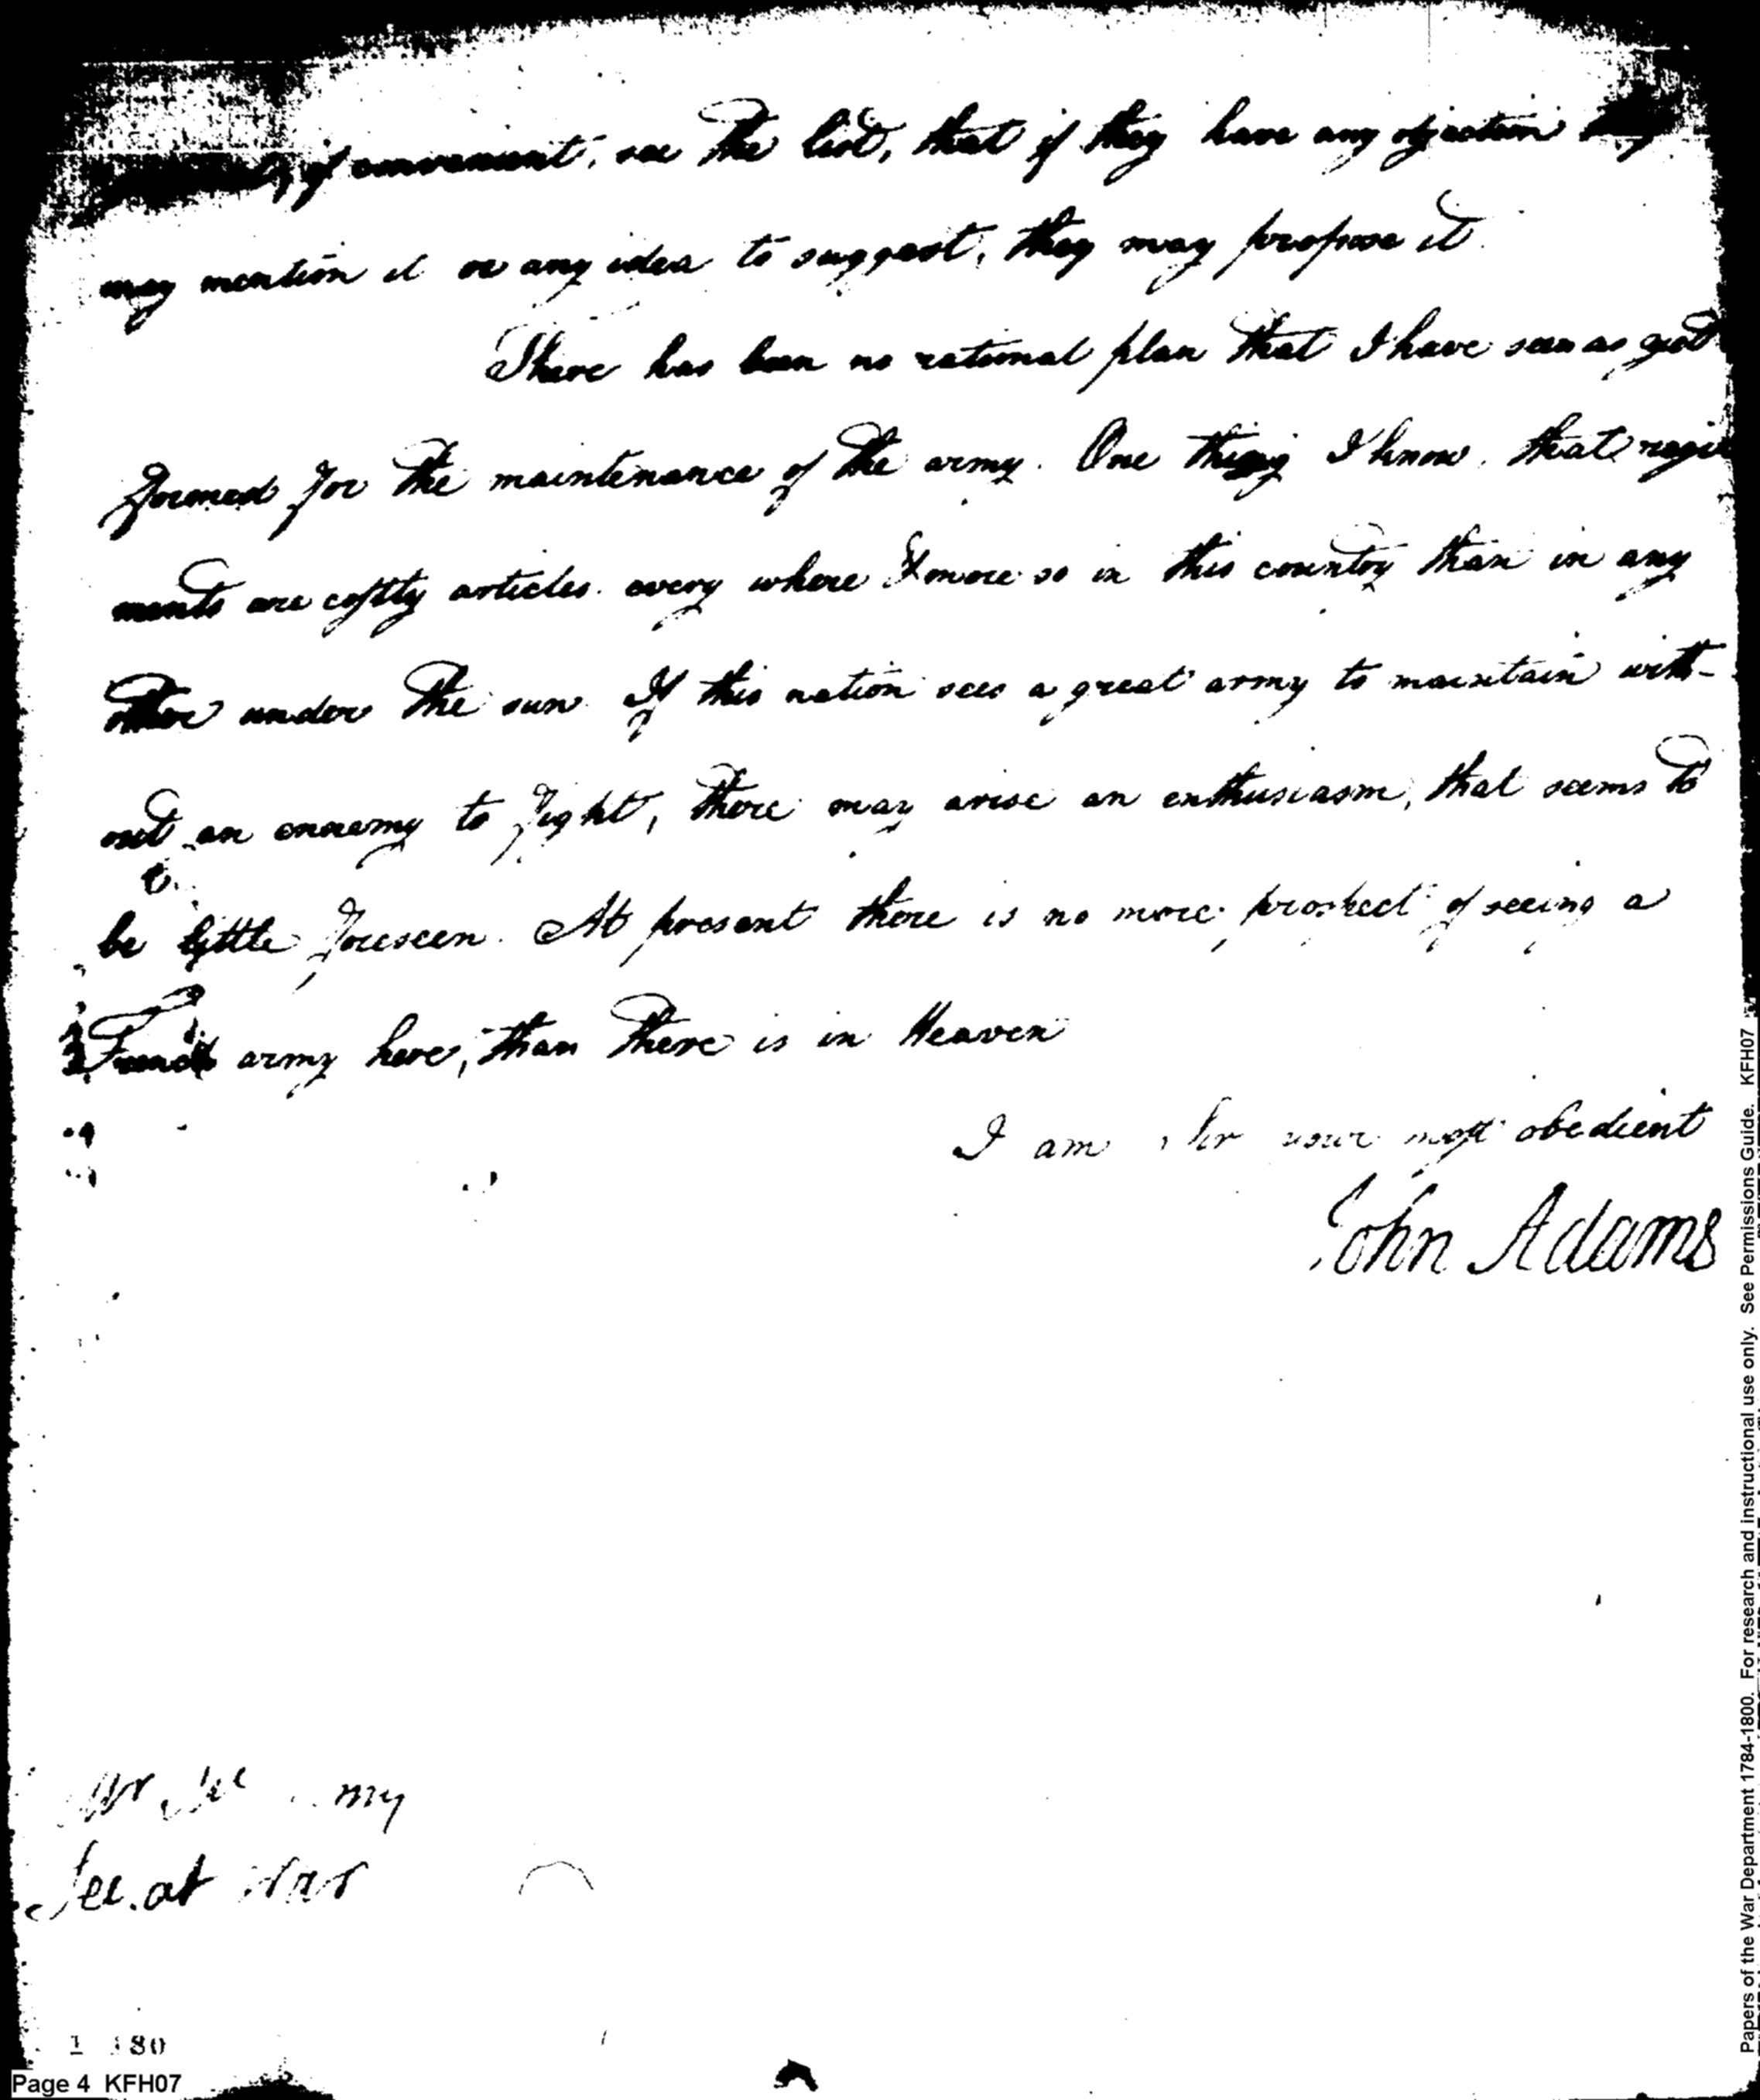 if convenient, see the list, that if they have any objection they
may mention it or any idea to suggest, they may propose it.
There has been no rational plan that I have seen as yet
formed for the maintenance of the army. One thing I know, that regi
ments are costly articles every where & more so in this country than in any
other under the sun. If this nation sees a great army to maintain with-
out an ennemy to fight, there may arise an enthusiasm, that seems to
be little foreseen. At present there is no more prospect of seeing a
French army here, than there is in Heaven
I am Sir your most obedient
John Adams
Mr
Sec. at War
Page 4 KFH07
Papers of the War Department 1784-1800. For research and instructional use only. See Permissions Guide. KFH07